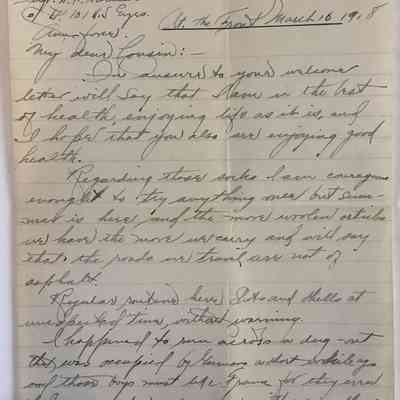 At The Front March 16 1918
Co. D. 101st Engrs.
My dear Cousin:—
In answer to your welcome
letter will say that I am in the best
of health, enjoying life as it is, and
I hope that you also are enjoying good
health.
Regarding those socks I am courageous
enought to try anything once but sum-
mer is here and the more woolen articles
we have the more we carry and will say
that the roads we travel are not of
asphalt.
Regular routine here and shells at
unexpected time without warning.
I happened to run across a dug-out
that was occupied by Germans a short while ago
and those boys must like France for they